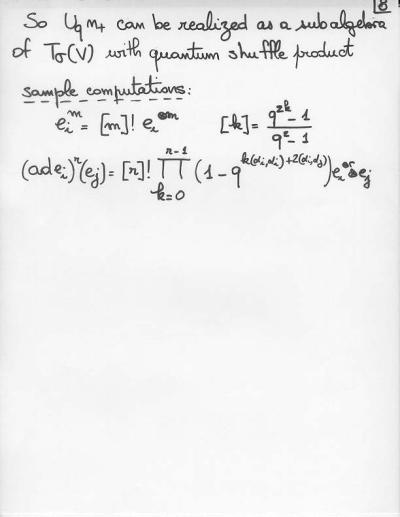 8
So U_q n_+ can be realized as a subalgebra
of T_σ(V) with quantum shuffle product
sample computations:
e_i^m = [m]! e_i^{⊗m}   [k] = (q^{2k} - 1)/(q^2 - 1)
(ad e_i)^r(e_j) = [r]! ∏_{k=0}^{r-1} (1 - q^{k(α_i,α_i)+2(α_i,α_j)}) e_i^{⊗r} ⊗ e_j